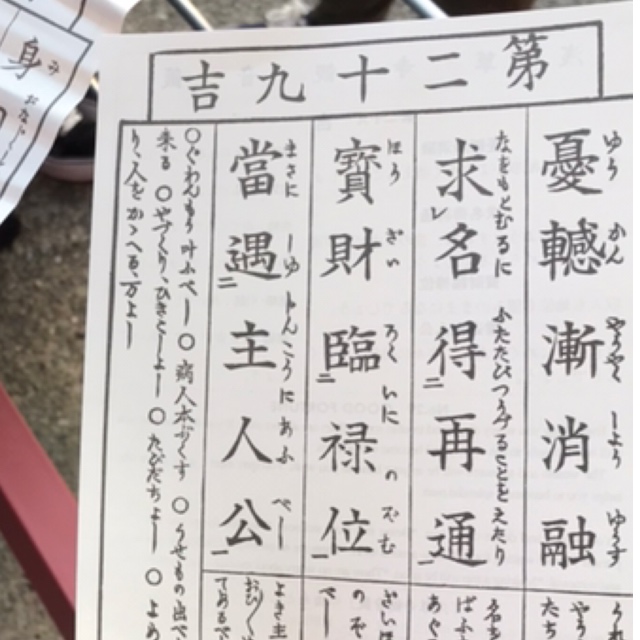 第二十九吉
憂轗漸消融
ゆう かん やうやく しよう ゆうす
求レ名得二再通一
なをもとむるに ふたたびつうずることをえたり
寶財臨二禄位一
ほう ざい ろく いに の ぞむ
當遇二主人公一
まさに しゆ じんこう に あふ べし
○ぐわんもう叶ふべし ○病人本ぷくす ○うせもの出べ
来る ○やづくり、ひきこしよし ○たびだちよし ○よめ
り、人をかゝへる、万よし
身
み